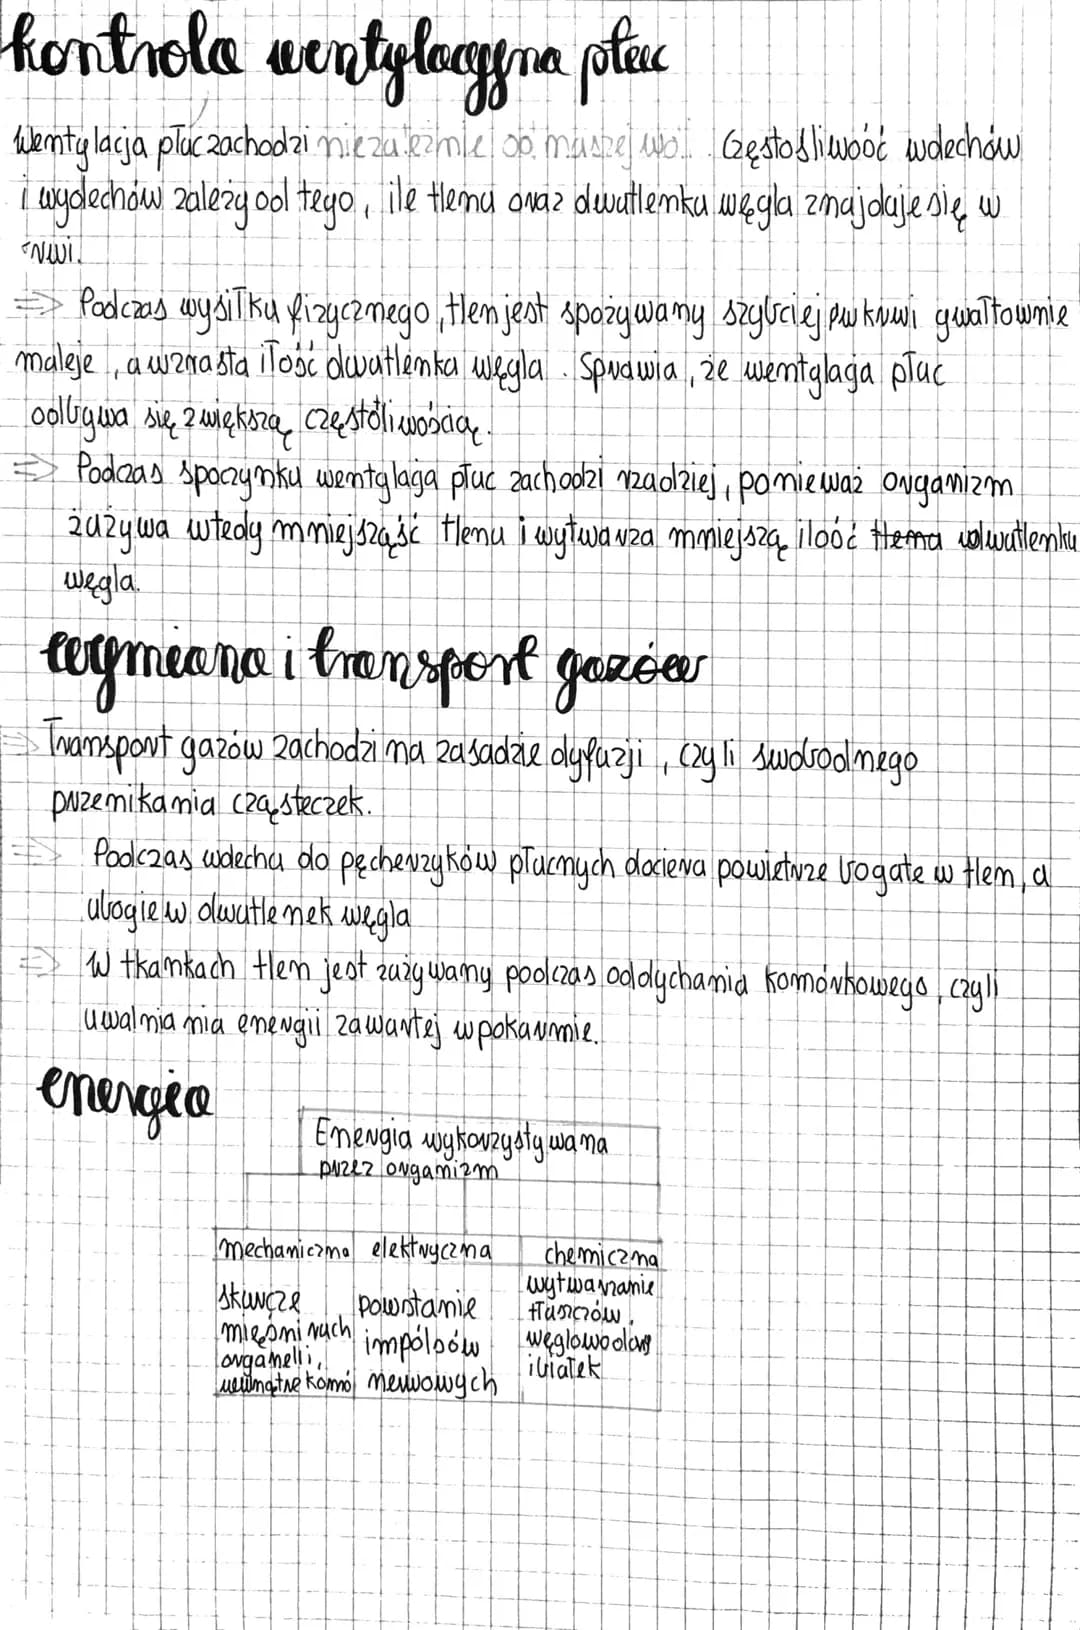 kontrola wentylacyjna płuc
Wentylacja płuc zachodzi niezależnie od naszej wo.. Częstośliwość wdechów
i wydechów zależy od tego, ile tlenu oraz dwutlenku węgla znajduje się w
krwi.
=> Podczas wysiłku fizycznego, tlen jest spożywany szybciej pw krwi gwałtownie
maleje, a wzrasta ilość dwutlenka węgla. Sprawia, że wentylacja płuc
odbywa się z większą częstoliwością.
=> Podczas spoczynku wentylacja płuc zachodzi rzadziej, ponieważ organizm
zużywa wtedy mniejszaść tlenu i wytwarza mniejszą ilość tlena dwutlenku
węgla.
wymiana i transport gazów
=> Transport gazów zachodzi na zasadzie dyfuzji, czyli swobodnego
przenikania cząsteczek.
=> Podczas wdechu do pęcherzyków płucnych dociera powietrze bogate w tlen, a
ubogie w dwutlenek węgla
=> W tkankach tlen jest zużywany podczas oddychania komórkowego, czyli
uwalniania energii zawartej w pokarmie.
energia
Energia wykorzystywana
przez organizm
mechaniczna elektryczna chemiczna
skurcze
mięśni ruch
organelli,
wewnątrz komó
powstanie
impólsów
nerwowych
wytwarzanie
tłuszczów,
węglowodany
i białek